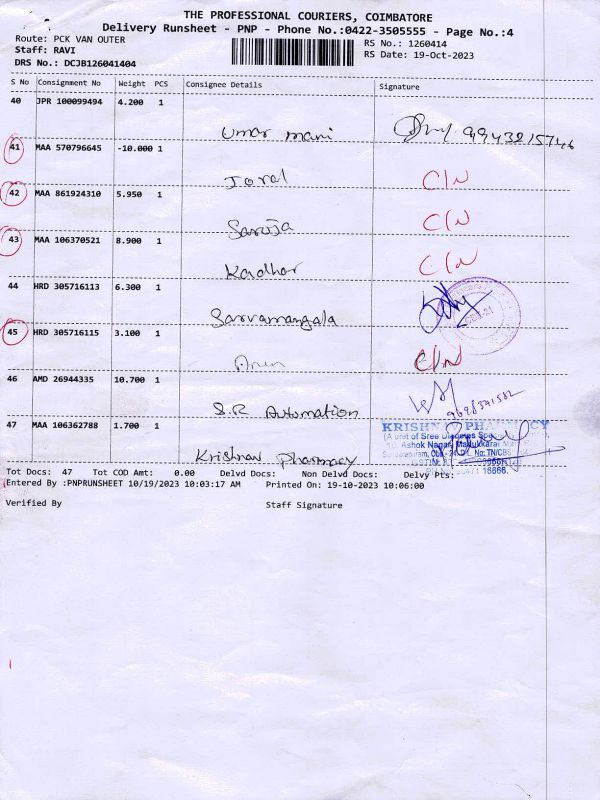 THE PROFESSIONAL COURIERS, COIMBATORE
Delivery Runsheet - PNP - Phone No.:0422-3505555 - Page No.:4
Route: PCK VAN OUTER
RS No.: 1260414
Staff: RAVI
RS Date: 19-Oct-2023
DRS No.: DCJB126041404
S No Consignment No Weight PCS Consignee Details Signature
40 JPR 100099494 4.200 1
Umar mani 9943215746
41 MAA 570796645 -10.000 1
C/N
42 MAA 861924310 5.950 1
Saroja C/N
43 MAA 106370521 8.900 1
Kadhar C/N
44 HRD 305716113 6.300 1
Sarvamangala
45 HRD 305716115 3.100 1
Arun C/N
46 AMD 26944335 10.700 1
S.R Automation
47 MAA 106362788 1.700 1
KRISHN PHARMACY
(A unit of Sree Diabetes
Ashok Nagar, Madukkarai
Krishnav Pharmacy
Tot Docs: 47 Tot COD Amt: 0.00 Delvd Docs: Non Delvd Docs: Delvy Pts:
Entered By :PNPRUNSHEET 10/19/2023 10:03:17 AM Printed On: 19-10-2023 10:06:00
Verified By Staff Signature